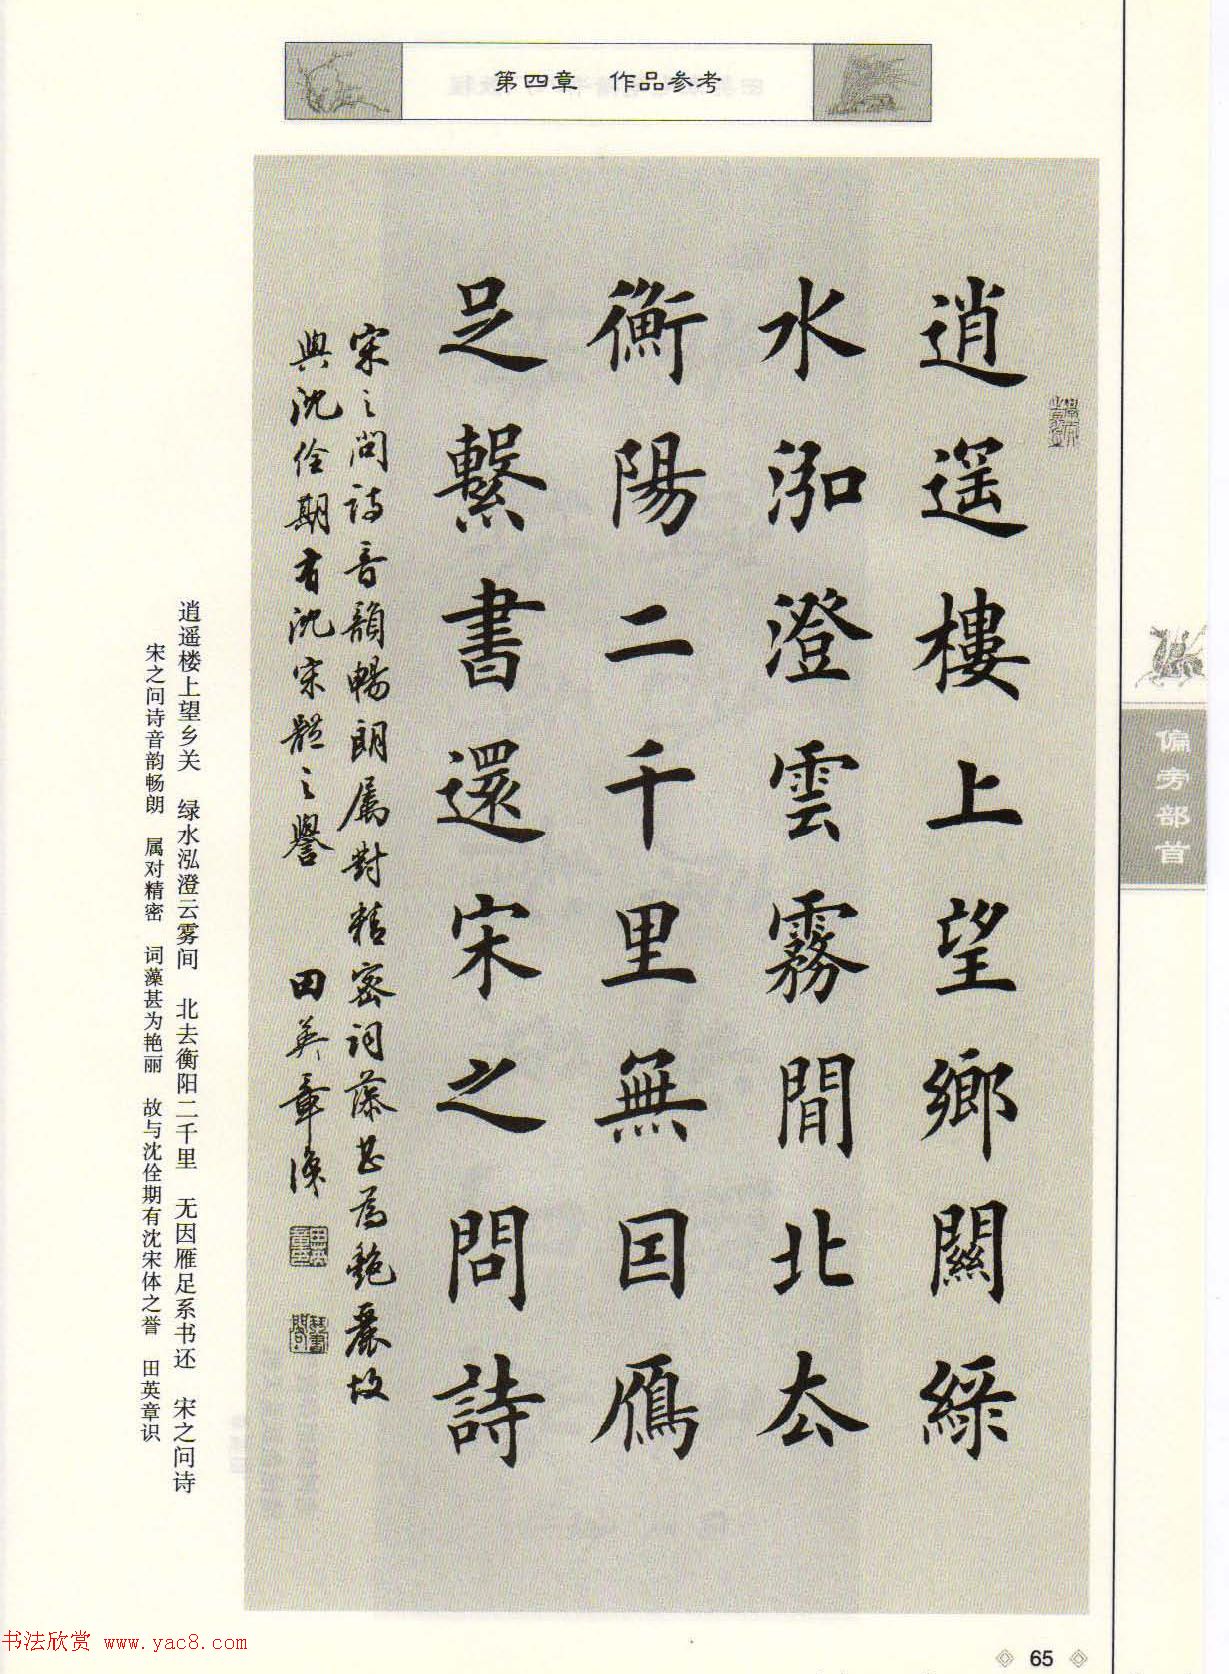 第四章 作品参考
逍遥樓上望鄉關綠
水泓澄雲霧間北去
衡陽二千里無因雁
足繫書還宋之問詩
宋之問詩音韻暢朗属對精密词藻甚為艷麗故
與沈佺期有沈宋體之譽 田英章識
逍遥楼上望乡关 绿水泓澄云雾间 北去衡阳二千里 无因雁足系书还 宋之问诗
宋之问诗音韵畅朗 属对精密 词藻甚为艳丽 故与沈佺期有沈宋体之誉 田英章识
偏旁部首
65
书法欣赏 www.yac8.com